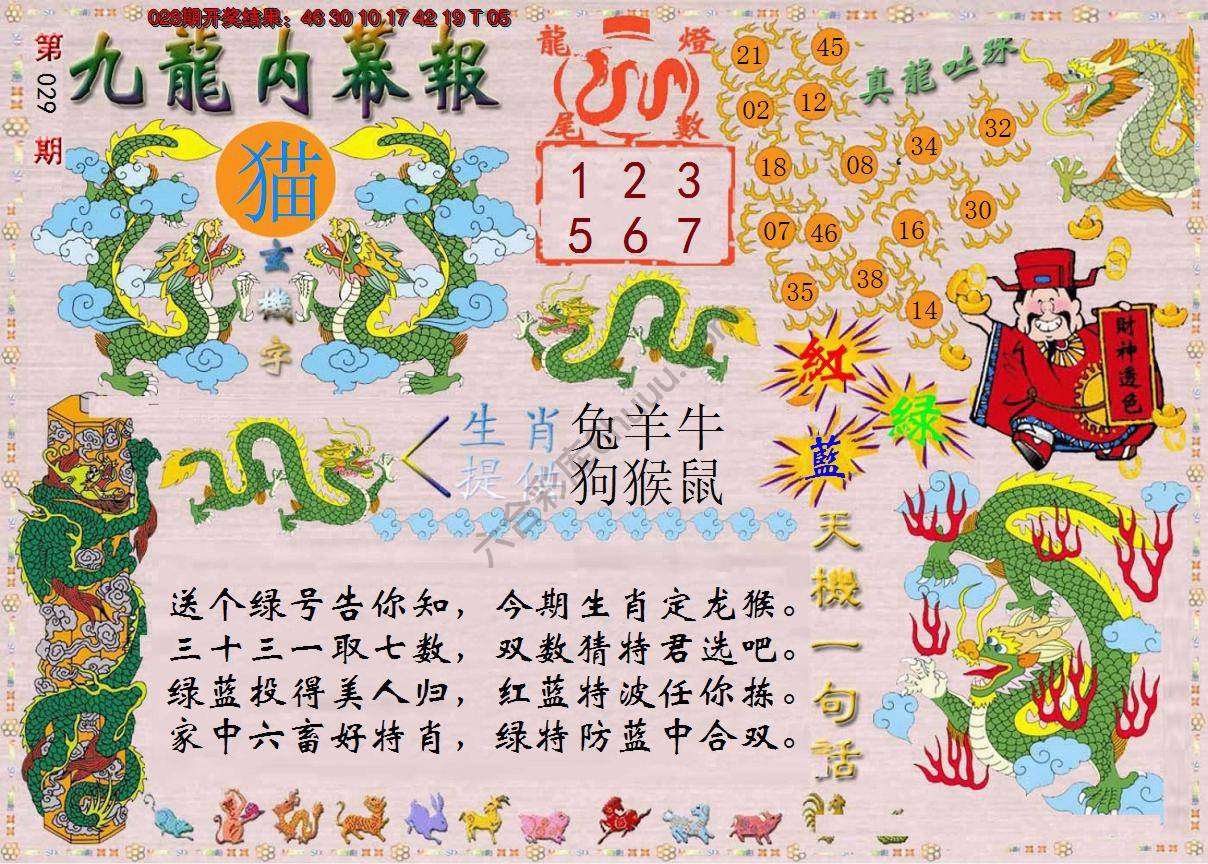 028期开奖结果：46 30 10 17 42 19 T 05
第029期
九龍内幕報
猫
玄機字
龍燈
尾數
1 2 3
5 6 7
真龍吐珠
21 45
02 12
18 08 34 32
07 46 16 30
35 38 14
財神透色
紅
綠
藍
生肖
提供
兔羊牛
狗猴鼠
天機一句話
送个绿号告你知，今期生肖定龙猴。
三十三一取七数，双数猜特君选吧。
绿蓝投得美人归，红蓝特波任你拣。
家中六畜好特肖，绿特防蓝中合双。